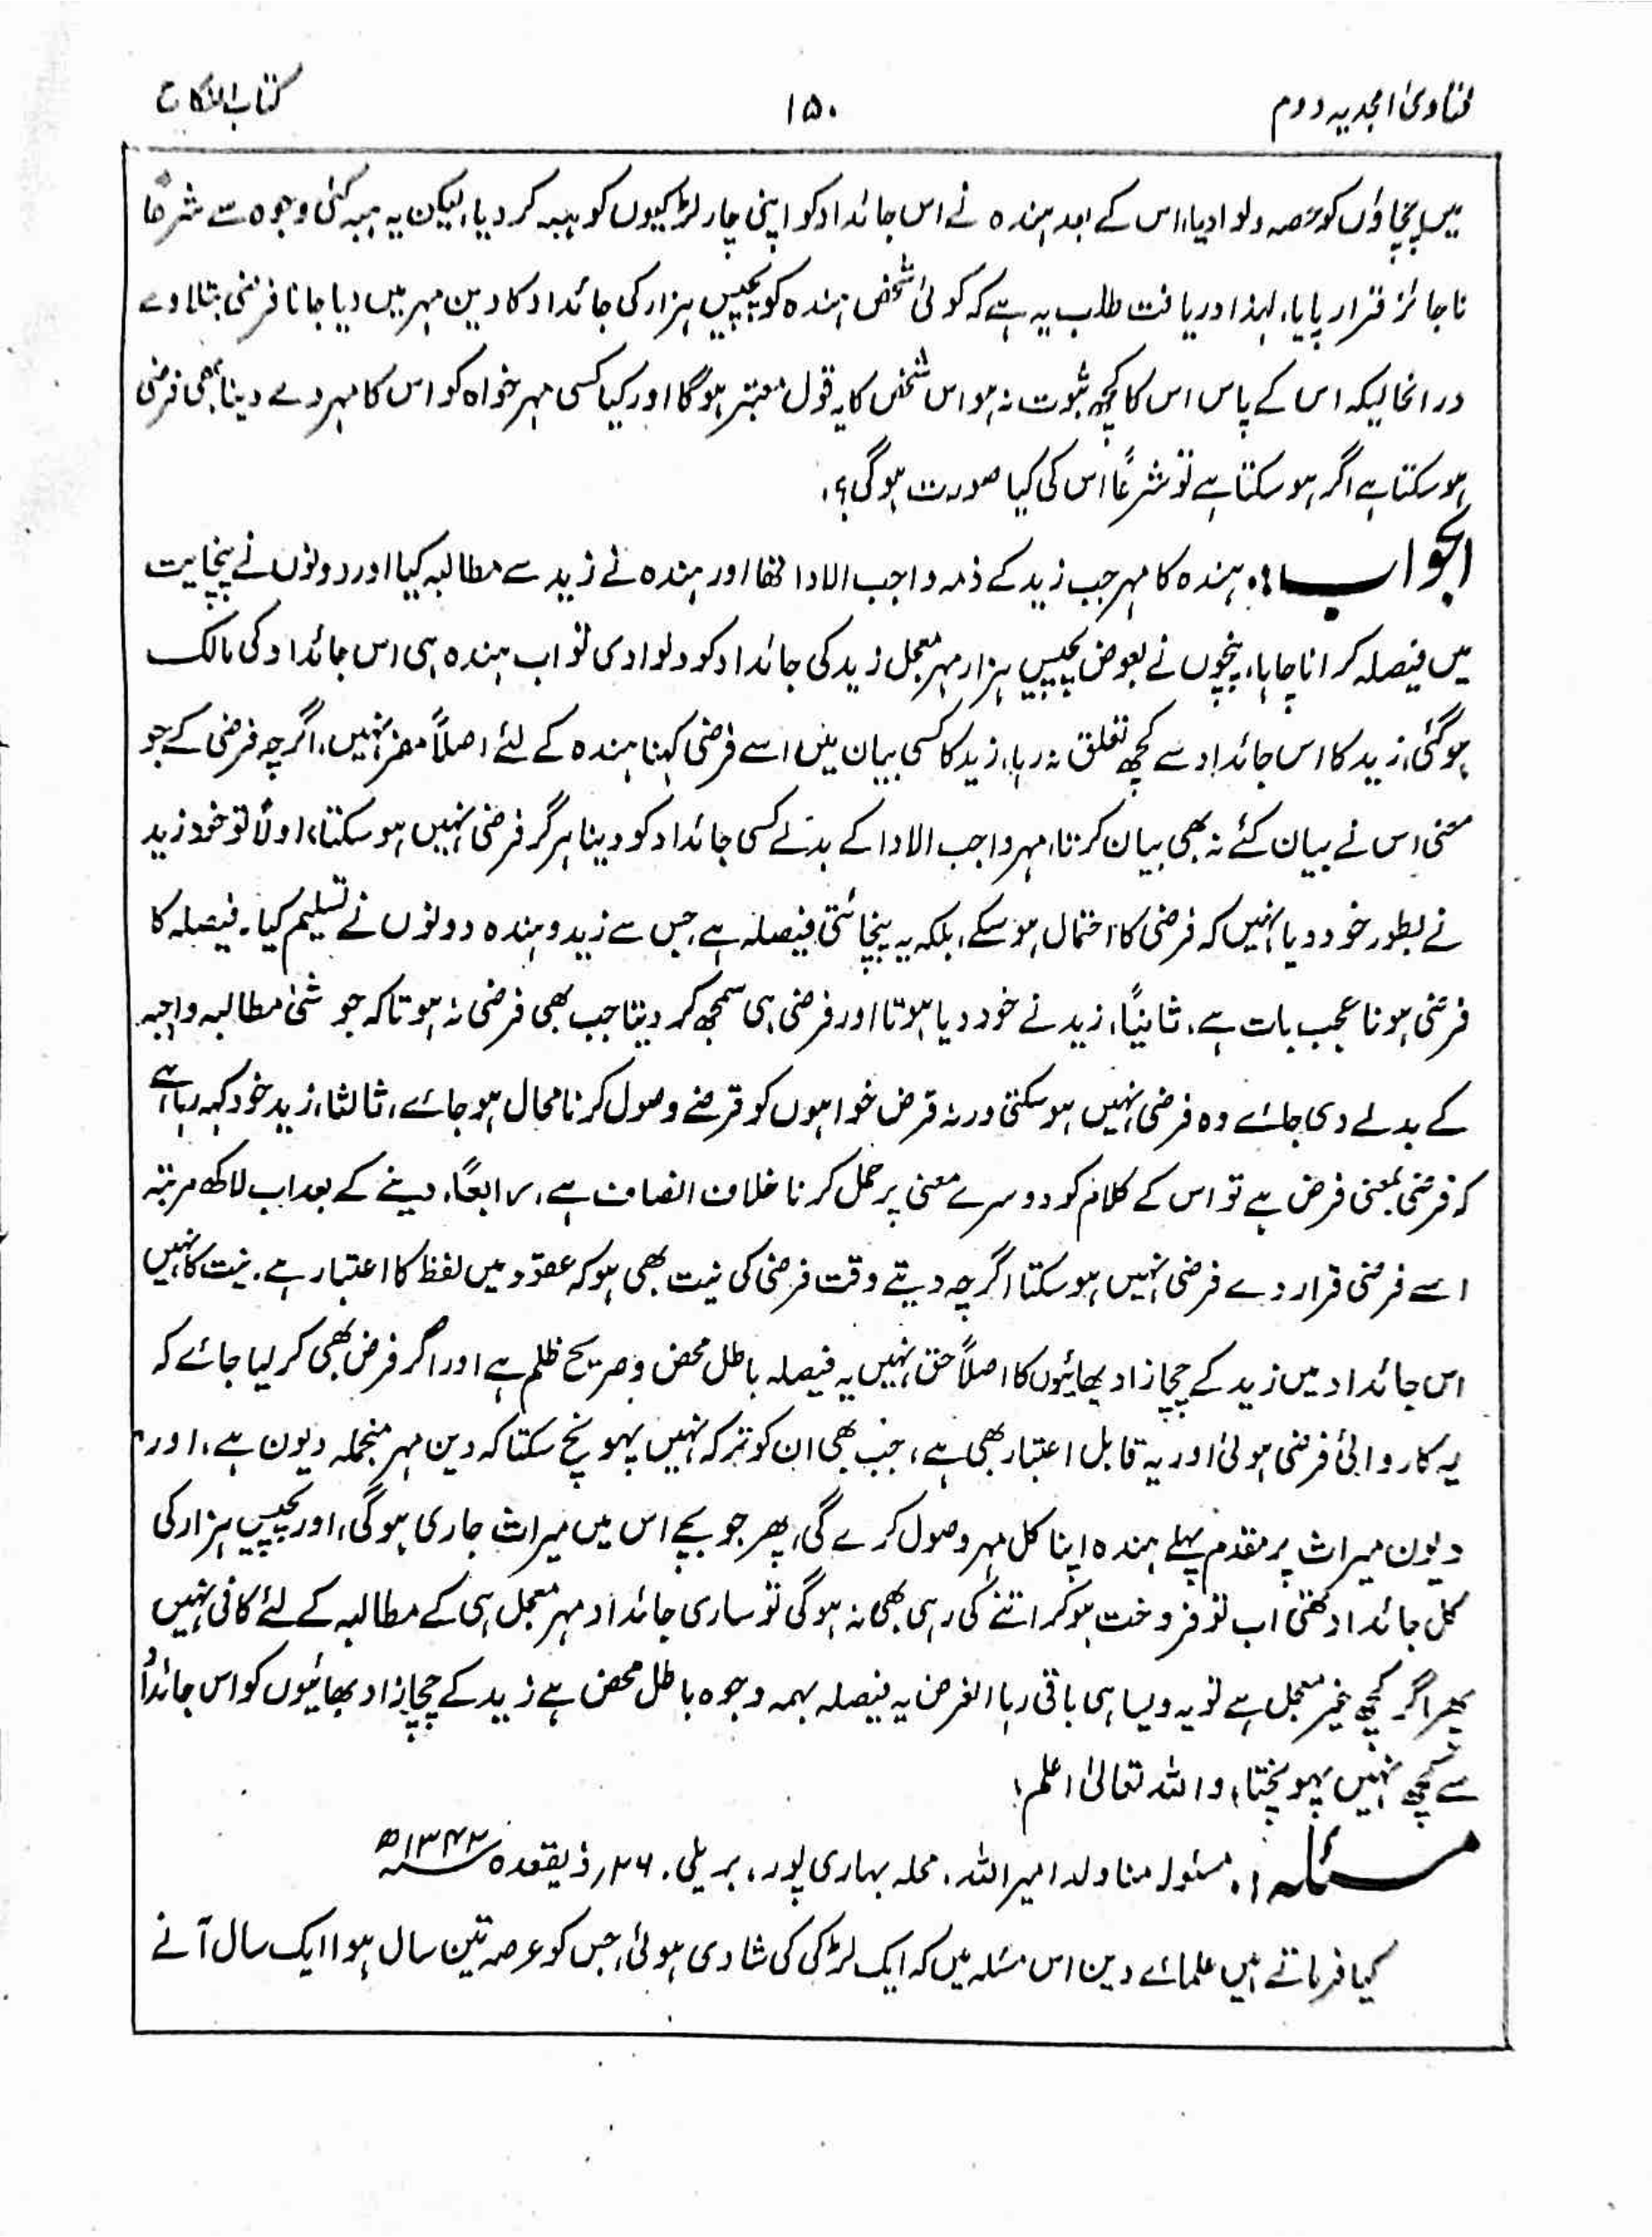 فتاویٰ امجدیہ دوم ۱۵۰ کتاب النکاح
میں چچاؤں کو حصہ دلوا دیا، اس کے بعد ہندہ نے اس جائداد کو اپنی چار لڑکیوں کو ہبہ کر دیا، لیکن یہ ہبہ کئی وجوہ سے شرعًا
ناجائز قرار پایا، لہذا دریافت طلب یہ ہے کہ کوئی شخص ہندہ کو پچیس ہزار کی جائداد کا دین مہر میں دیا جانا فرضی بتلاوے
درانحالیکہ اس کے پاس اس کا کچھ ثبوت نہ ہو اس شخص کا یہ قول معتبر ہوگا اور کیا کسی مہر خواہ کو اس کا مہر دے دینا بھی فرضی
ہو سکتا ہے اگر ہو سکتا ہے تو شرعًا اس کی کیا صورت ہوگی؟
الجواب: ہندہ کا مہر جب زید کے ذمہ واجب الادا تھا اور ہندہ نے زید سے مطالبہ کیا اور دونوں نے پنچایت
میں فیصلہ کرانا چاہا، پنچوں نے بعوض پچیس ہزار مہر معجل زید کی جائداد کو دلوا دی تو اب ہندہ ہی اس جائداد کی مالک
ہوگئی، زید کا اس جائداد سے کچھ تعلق نہ رہا، زید کا کسی بیان میں اسے فرضی کہنا ہندہ کے لئے اصلاً مضر نہیں، اگرچہ فرضی کے جو
معنی اس نے بیان کئے نہ بھی بیان کرتا، مہر واجب الادا کے بدلے کسی جائداد کو دینا ہرگز فرضی نہیں ہو سکتا، اولاً تو خود زید
نے بطور خود دیا نہیں کہ فرضی کا احتمال ہو سکے، بلکہ یہ پنچائتی فیصلہ ہے، جس سے زید و ہندہ دونوں نے تسلیم کیا۔ فیصلہ کا
فرضی ہونا عجیب بات ہے، ثانیًا، زید نے خود دیا ہوتا اور فرضی ہی سمجھ کر دیتا جب بھی فرضی نہ ہوتا کہ جو شئی مطالبہ واجبہ
کے بدلے دی جائے وہ فرضی نہیں ہو سکتی ورنہ قرض خواہوں کو قرضے وصول کرنا محال ہو جائے، ثالثا، زید خود کہہ رہا ہے
کہ فرضی بمعنی فرض ہے تو اس کے کلام کو دوسرے معنی پر حمل کرنا خلاف انصاف ہے، رابعًا، دینے کے بعد اب لاکھ مرتبہ
اسے فرضی قرار دے فرضی نہیں ہو سکتا اگرچہ دیتے وقت فرضی کی نیت بھی ہو کہ عقود میں لفظ کا اعتبار ہے۔ نیت کا نہیں
اس جائداد میں زید کے چچازاد بھائیوں کا اصلاً حق نہیں یہ فیصلہ باطل محض و صریح ظلم ہے اور اگر فرض بھی کر لیا جائے کہ
یہ کاروائی فرضی ہوئی اور یہ قابل اعتبار بھی ہے، جب بھی ان کو ترکہ نہیں پہونچ سکتا کہ دین مہر منجملہ دیون ہے، اور
دیون میراث پر مقدم پہلے ہندہ اپنا کل مہر وصول کرے گی، پھر جو بچے اس میں میراث جاری ہوگی، اور پچیس ہزار کی
کل جائداد تھی اب تو فروخت ہو کر اتنے کی رہی بھی نہ ہوگی تو ساری جائداد مہر معجل ہی کے مطالبہ کے لئے کافی نہیں
پھر اگر کچھ غیر معجل ہے تو یہ ویسا ہی باقی رہا الغرض یہ فیصلہ بہمہ وجوہ باطل محض ہے زید کے چچازاد بھائیوں کو اس جائداد
سے کچھ نہیں پہونچتا، واللہ تعالیٰ اعلم؛
مسئلہ: مسئولہ منا ولد امیر اللہ، محلہ بہاری پور، بریلی، ۲۶ ذیقعدہ ۱۳۴۲ھ
کیا فرماتے ہیں علمائے دین اس مسئلہ میں کہ ایک لڑکی کی شادی ہوئی، جس کو عرصہ تین سال ہوا ایک سال آنے